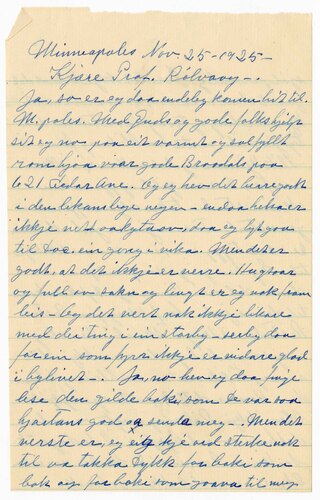 Minneapolis Nov. 25-1925-
Kjære Prof. Rölvaag-.
Ja, so er eg daa endeleg komen hit til
M.poles. Med Guds og gode folks hjelp
sit eg no paa eit varmt og solfyllt
rom hjaa vaar gode Braadals paa
621 Cedar Ave. Og eg hev det bare godt
i den likamlege vegen - endaa helsa er
ikkje nett aa skryta av, daa eg lyt gaa
til Doc. ein gong i vika. Men det er
godt, at det ikkje er verre. Hugsaar
og full av sakn og lengt er eg nok fram-
leis - Og det vert nok ikkje likare
med dei ting i ein storby - serleg daa
for ein som fyrr ikkje er vidare glad
i bylivet -. Ja, no hev eg daa finge
lese den gilde boki, som De var saa
hjartans god aa senda meg -. Men det
verste er, eg eig ikkje ord sterke nok
til aa takka Dykk for boki som
bok og for boki som gaava til meg